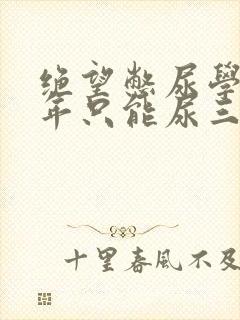 绝望憋尿學
年只能尿三
十里春風不及